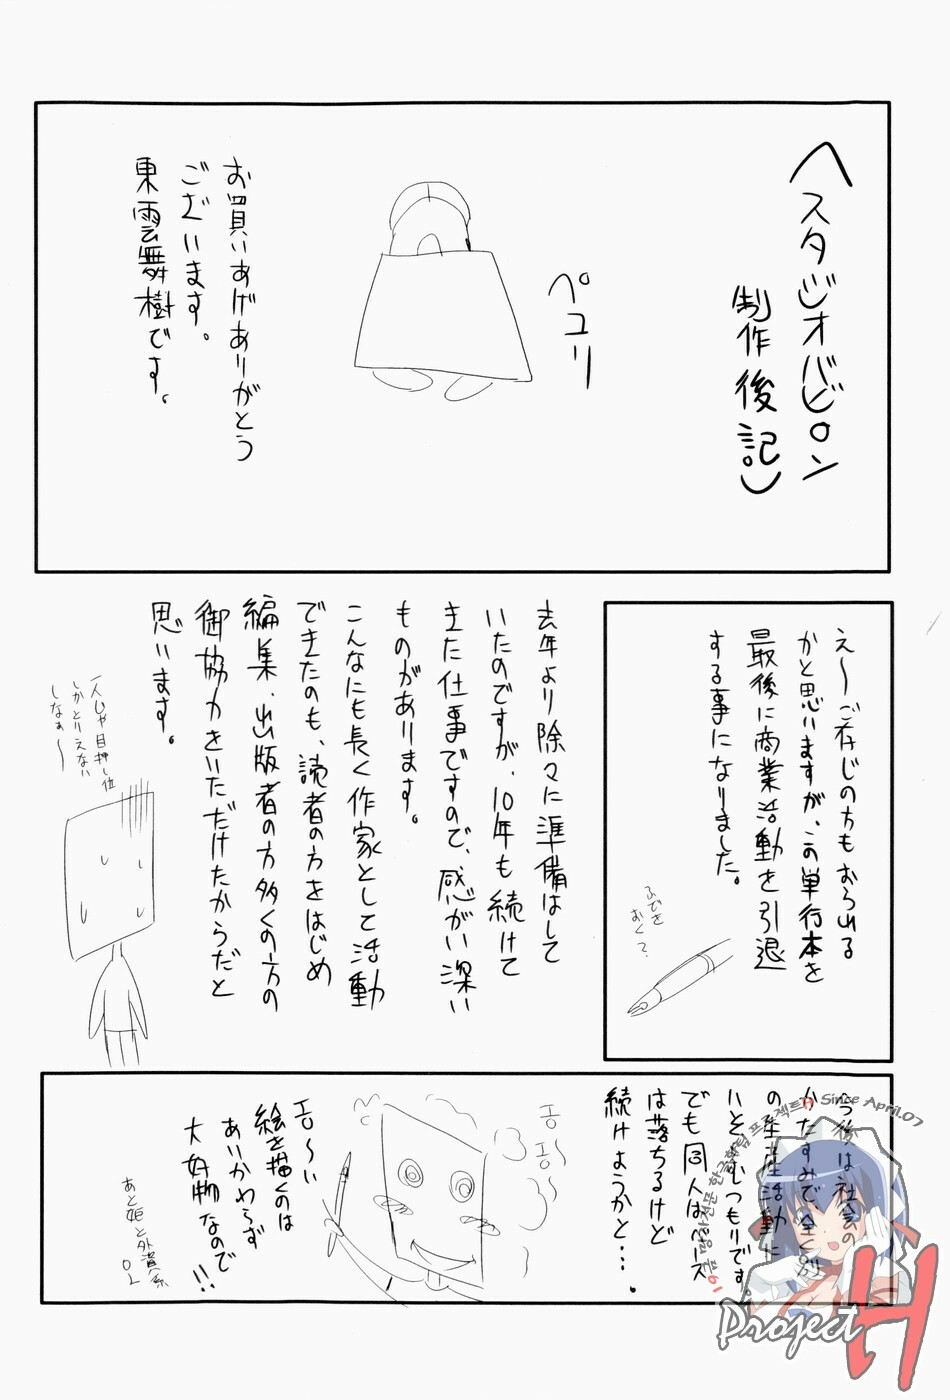 ヘスタジオバビロン
制作後記
ペユリ
お買いあげありがとう
ございます。
東雲舞樹です。
え〜ご存じの方もおられる
かと思いますが、この単行本を
最後に商業活動を引退
する事になりました。
ふでを
おく?
去年より除々に準備はして
いたのですが、10年も続けて
きた仕事ですので、感がい深い
ものがあります。
こんなにも長く作家として活動
できたのも、読者の方をはじめ
編集、出版者の方多くの方の
御協力をいただけたからだと
思います。
一人じゃ目押し位
しかとりえない
しなぁ〜
今後は社会の
かたすみで全く別
の生産活動に
いそしむつもりです。
でも同人はペース
は落ちるけど
続けようかと…
エロ〜
エロ〜
エロ〜い
絵を描くのは
あいかわらず
大好物なので
!!
あと姫と外道系
OL
한글화팀 프로젝트H Since April.07
Project H